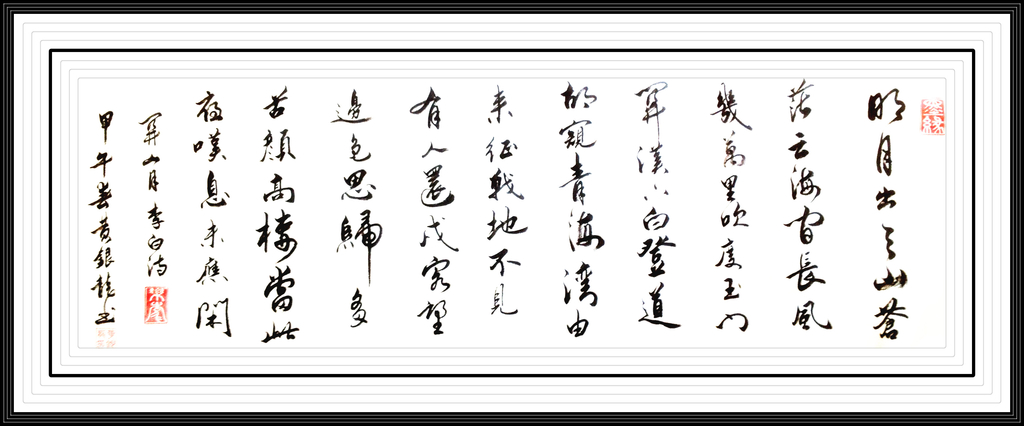 墨緣
明月出天山蒼
茫云海间長風
幾萬里吹度玉门
關漢下白登道
胡窺青海灣由
来征戰地不見
有人還戍客望
邊色思歸多
苦顏高樓當此
夜嘆息未應閑
關山月 李白诗
甲午春黃銀龍书